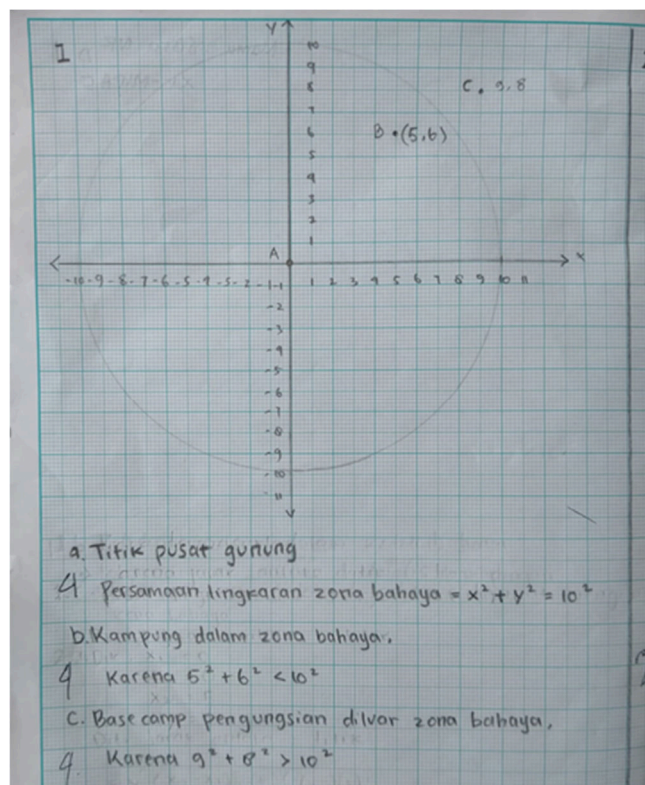 1
Y
10
9
8
C. 9,8
7
6
B •(5,6)
5
4
3
2
1
A
X
-10 -9 -8 -7 -6 -5 -4 -3 -2 -1 -1 1 2 3 4 5 6 7 8 9 10 11
-2
-3
-4
-5
-6
-7
-8
-9
-10
-11
a. Titik pusat gunung
4 Persamaan lingkaran zona bahaya = x² + y² = 10²
b. Kampung dalam zona bahaya.
4 Karena 5² + 6² < 10²
C. Base camp pengungsian diluar zona bahaya,
4. Karena 9² + 8² > 10²